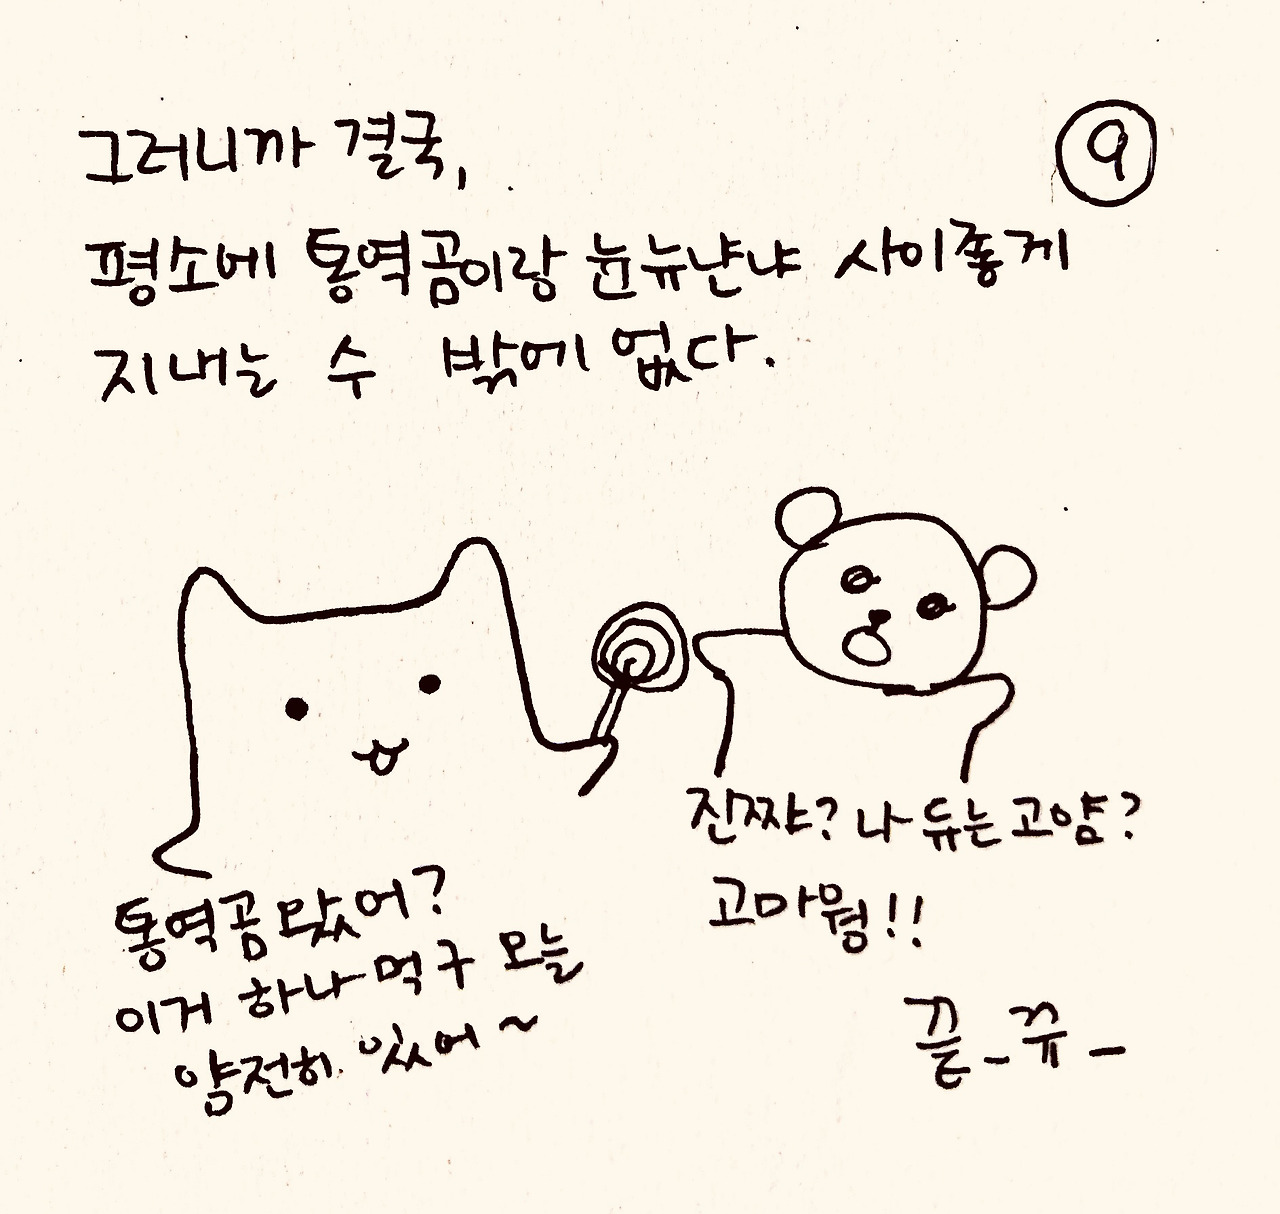 그러니까 결국,
⑨
평소에 통역곰이랑 뉸뉴냔냐 사이좋게
지내는 수 밖에 없다.
진쨔? 나 듀는고얌?
고마웡!!
통역곰 왔어?
이거 하나 먹구 오늘
얌전히 있어~
끝_뀨_